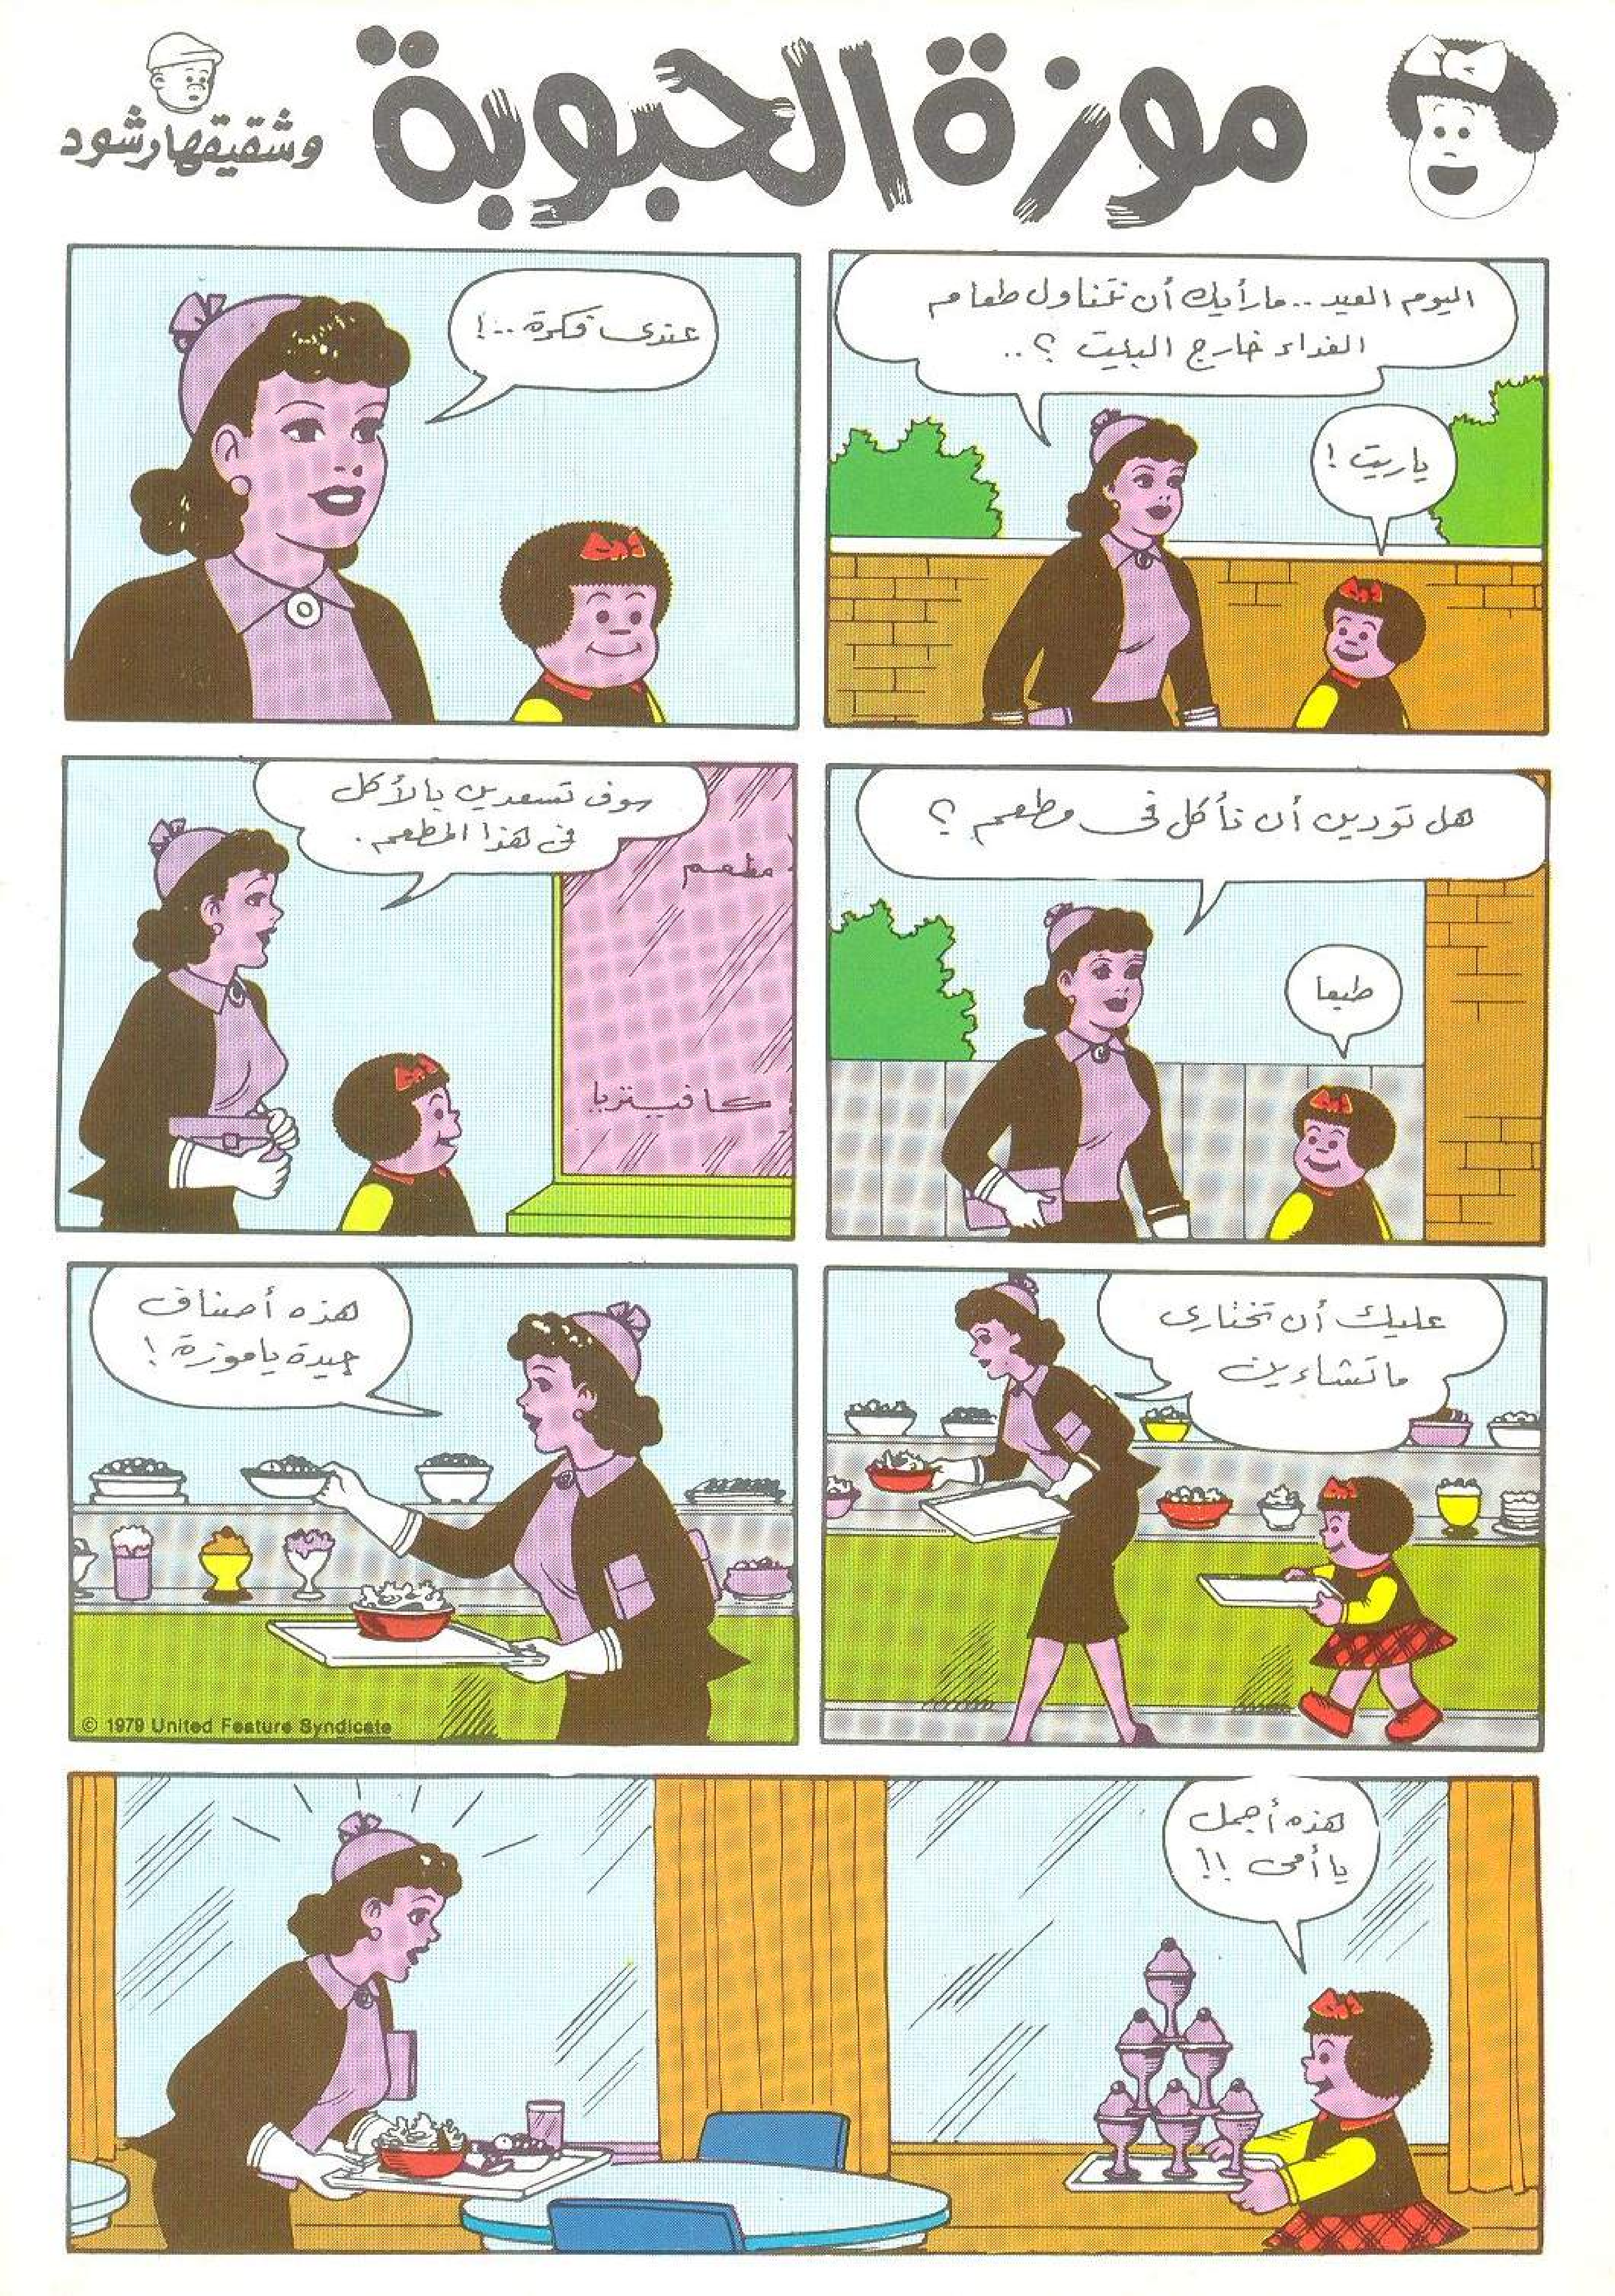 موزة الحبوبة
وشقيقها رشود
اليوم العيد .. مارأيك أن نتناول طعام
الغداء خارج البيت ؟ ..
ياريت !
عندى فكرة ..!
هل تودين أن نأكل فى مطعم ؟
طبعا
سوف تسعدين بالأكل
فى هذا المطعم .
مطعم
كافيتريا
عليك أن تختارى
ماتشاءين
هذه أصناف
جيدة ياموزة !
© 1979 United Feature Syndicate
هذه أجمل
يا أمى !!